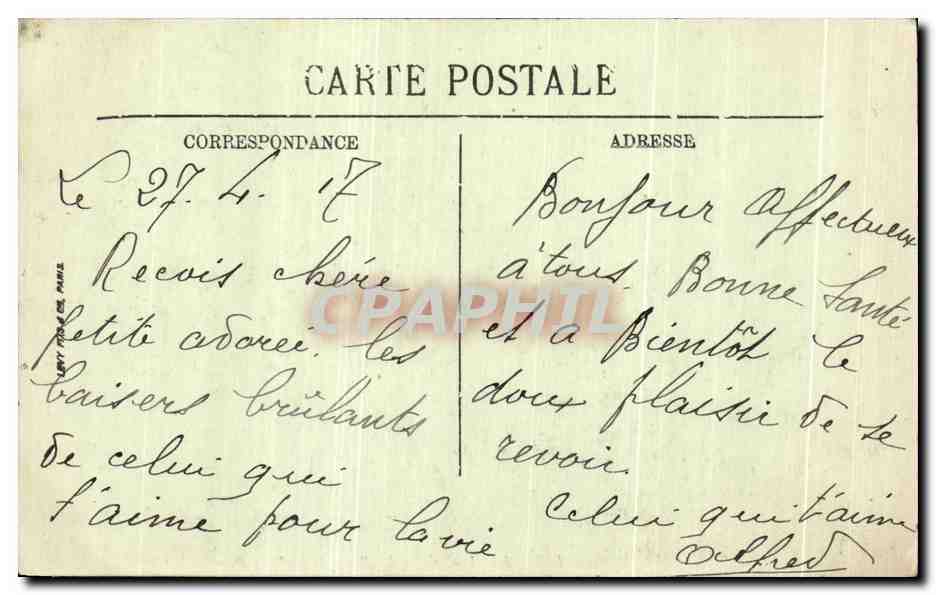 CARTE POSTALE
CORRESPONDANCE
Le 27. 4. 17
Recois chére
petite adorée. les
baisers brûlants
de celui qui
t'aime pour la vie
ADRESSE
Bonjour affectueux
à tous. Bonne Santé
et a Bientôt le
doux plaisir de se
revoir.
Celui qui t'aime
Alfred
LEVY FILS & CIE, PARIS
CPAPHIL